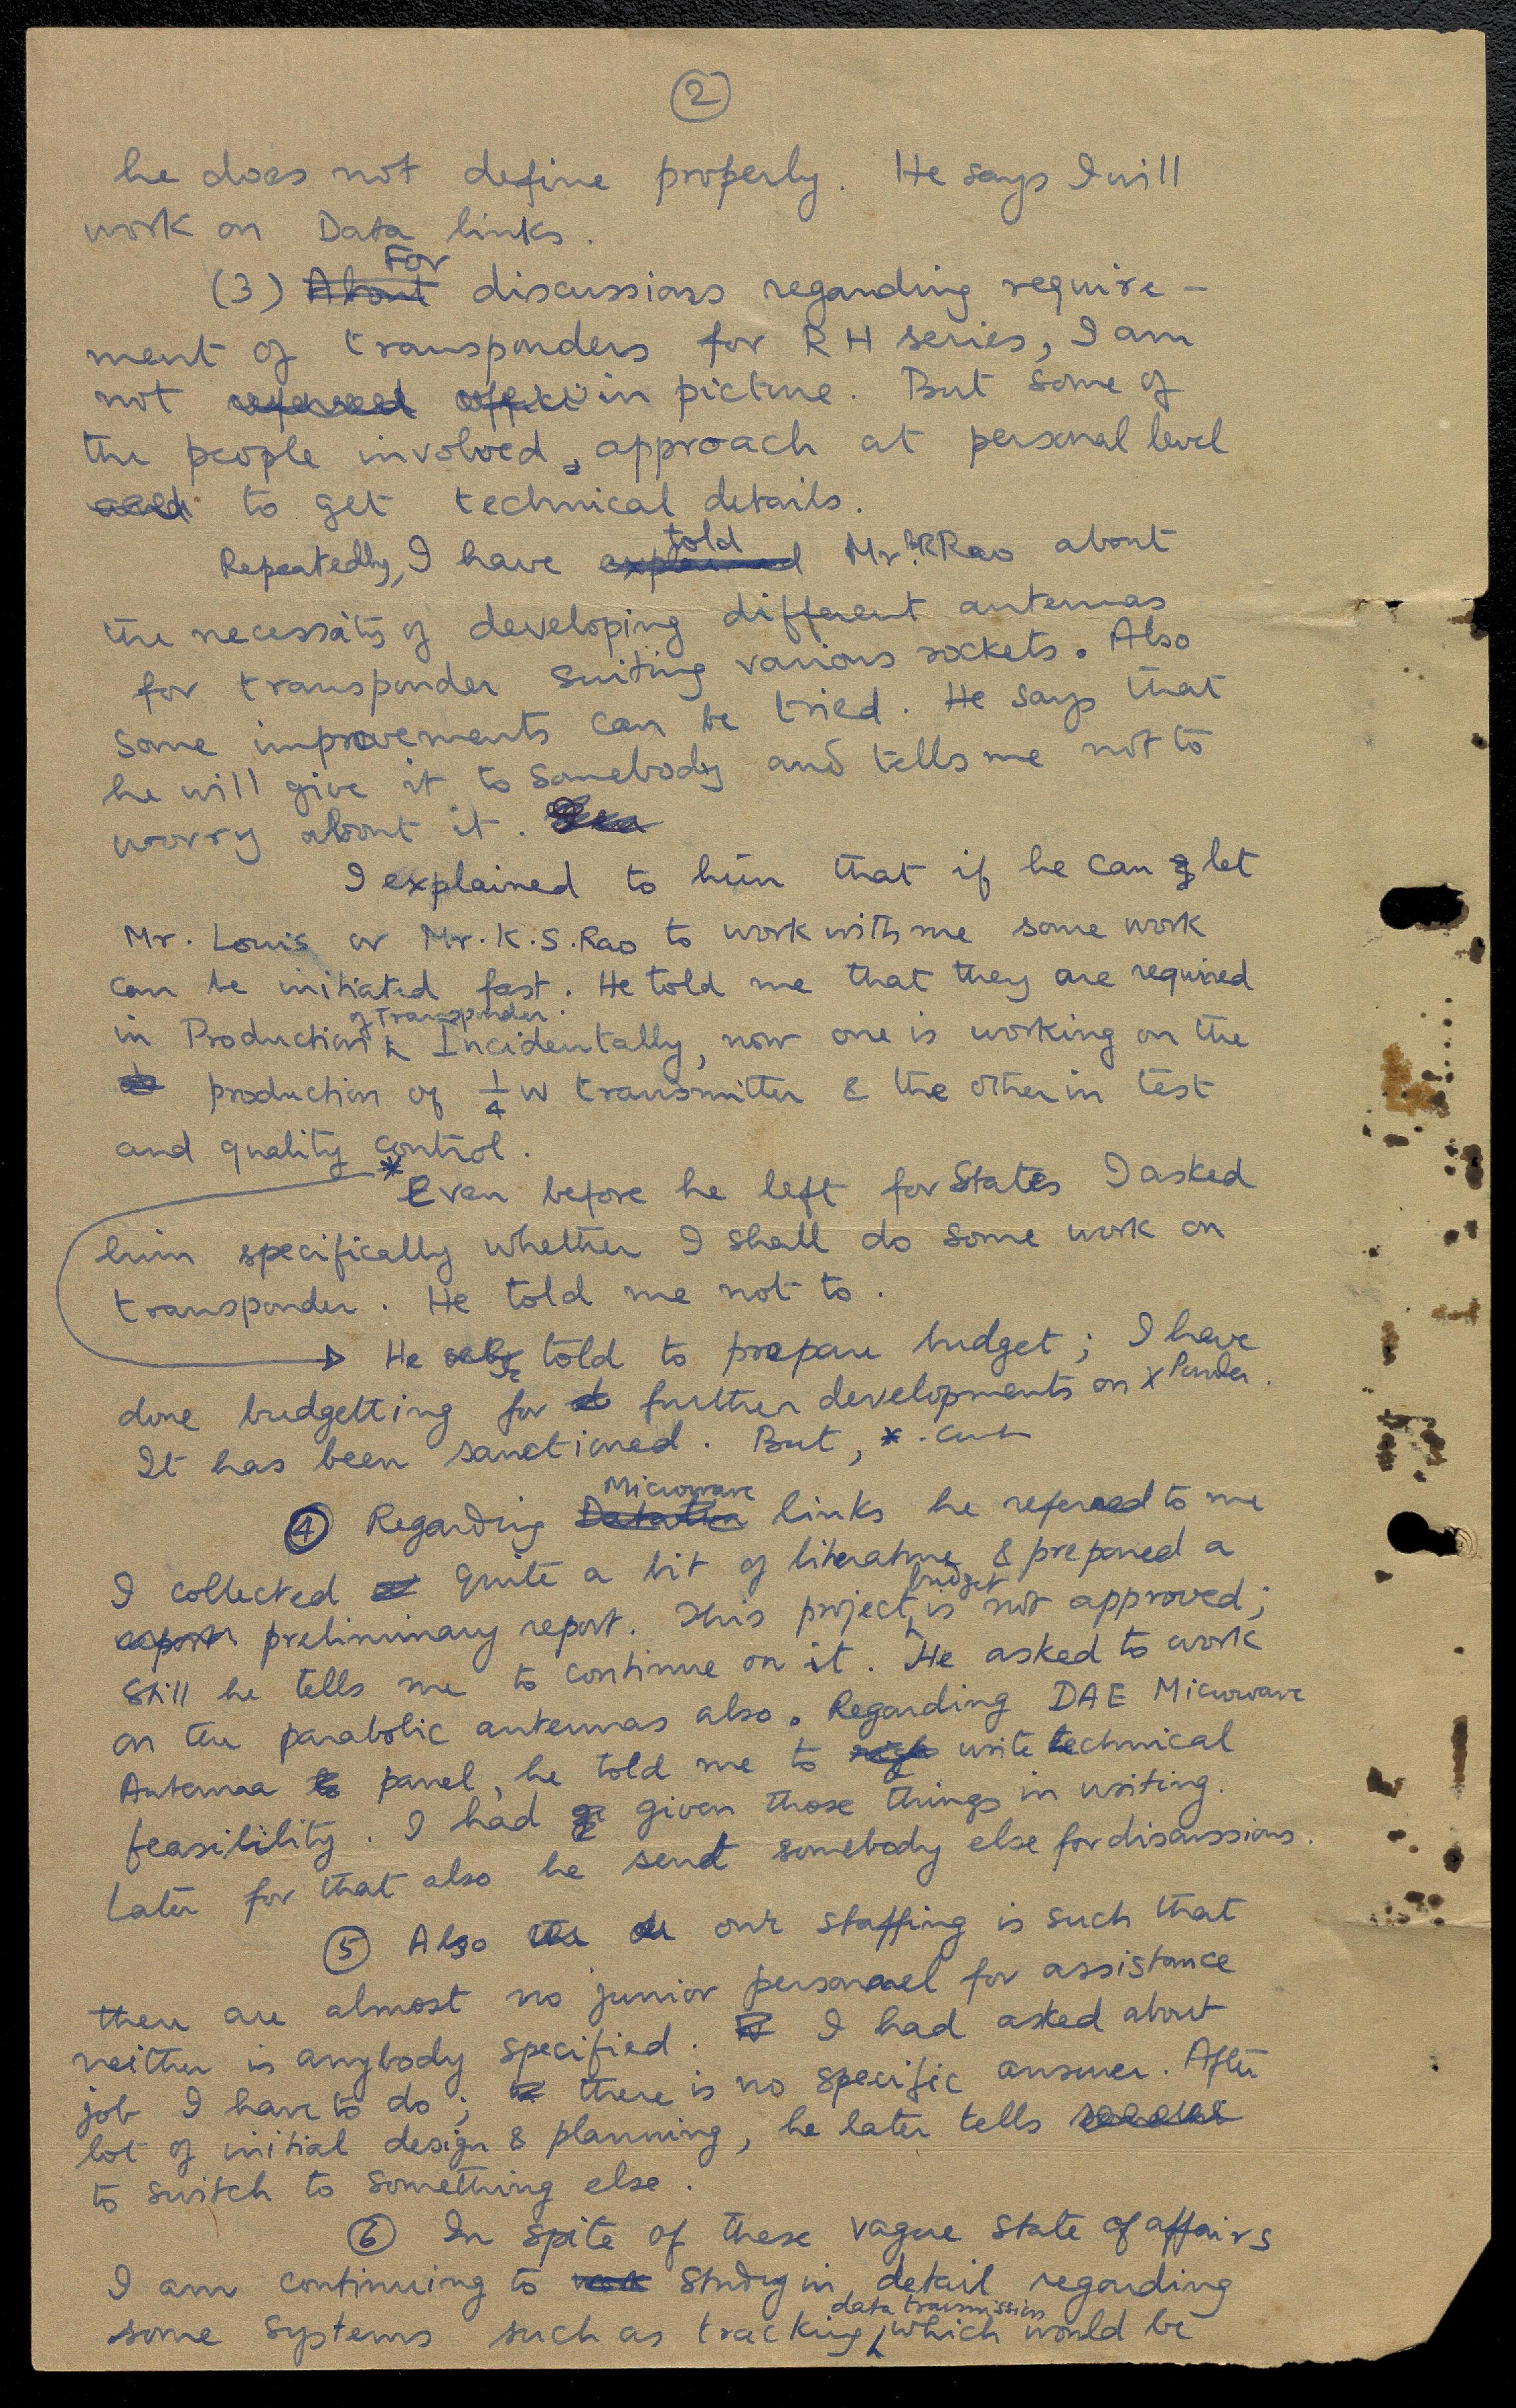 2
he does not define properly. He says I will
work on Data links.
For
(3) About discussions regarding require -
ment of transponders for RH series, I am
not refereed in picture. But some of
the people involved, approach at personal level
and to get technical details.
told
Repeatedly, I have explained Mr. Rao about
the necessity of developing different antennas
for transponder suiting various rockets. Also
some improvements can be tried. He says that
he will give it to somebody and tells me not to
worry about it.
I explained to him that if he can let
Mr. Louis or Mr. K.S. Rao to work with me some work
can be initiated fast. He told me that they are required
of Transponder.
in Production Incidentally, now one is working on the
production of 1/4 W transmitter & the other in test
and quality control.
* Even before he left for States I asked
him specifically whether I shall do some work on
transponder. He told me not to.
He told to prepare budget; I have
done budgetting for further developments on XPonder.
It has been sanctioned. But, *
Microwave
④ Regarding links he refereed to me
I collected quite a bit of literature & prepared a
budget
preliminary report. This project is not approved;
Still he tells me to continue on it. He asked to work
on the parabolic antennas also. Regarding DAE Microwave
Antenna panel, he told me to write technical
feasibility. I had given those things in writing.
Later for that also he send somebody else for discussions.
⑤ Also our staffing is such that
there are almost no junior personnel for assistance
neither is anybody specified. I had asked about
job I have to do; there is no specific answer. After
lot of initial design & planning, he later tells
to switch to something else.
⑥ In spite of these vague state of affairs
I am continuing to work study in detail regarding
data transmission
some systems such as tracking, which would be